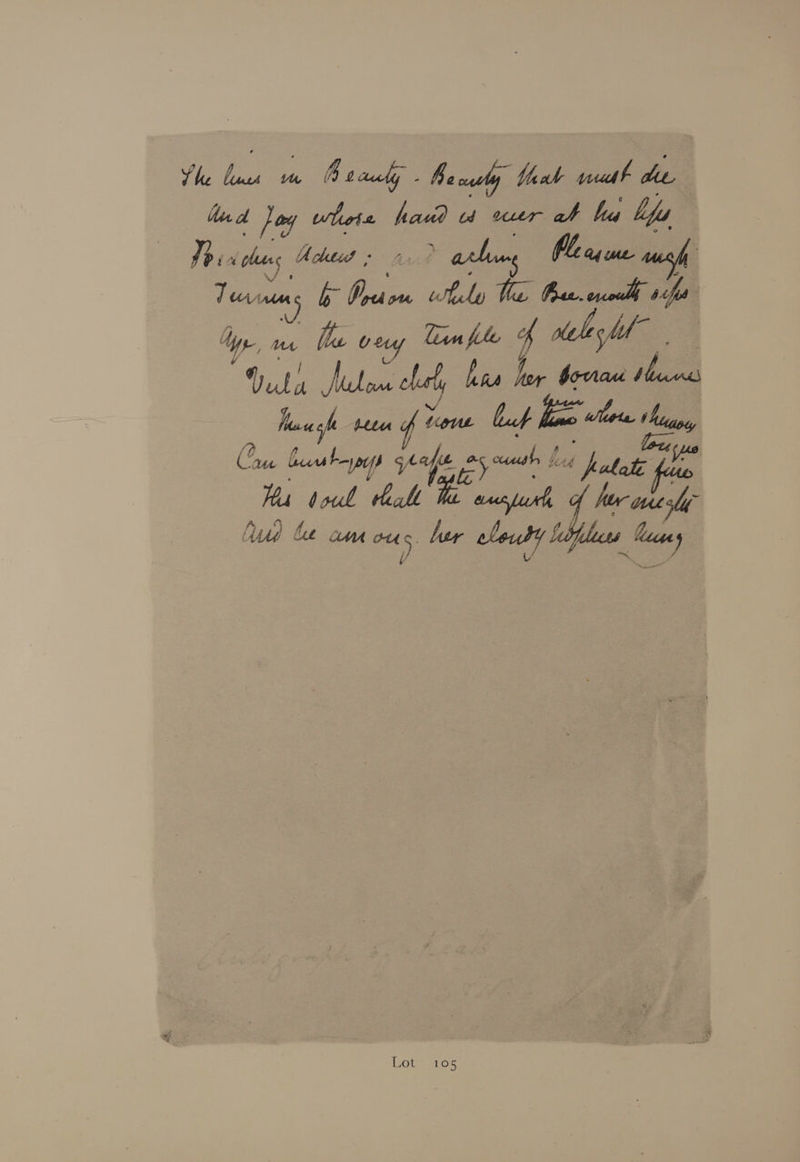 She lives in Beauty - Beauty that must die
And Joy whose hand is ever at his lips
Bidding Adieu ; and aching Pleasure nigh
Turning to Poison while the Bee-mouth sips
Aye, in the very Temple of delight
Veil'd Melancholy has her sovran shrine
Though seen of none but him whose strenuous
tongue
Can burst joy's grape against his palate fine
His soul shall taste the anguish of her might
And be among her cloudy trophies hung
Lot 105